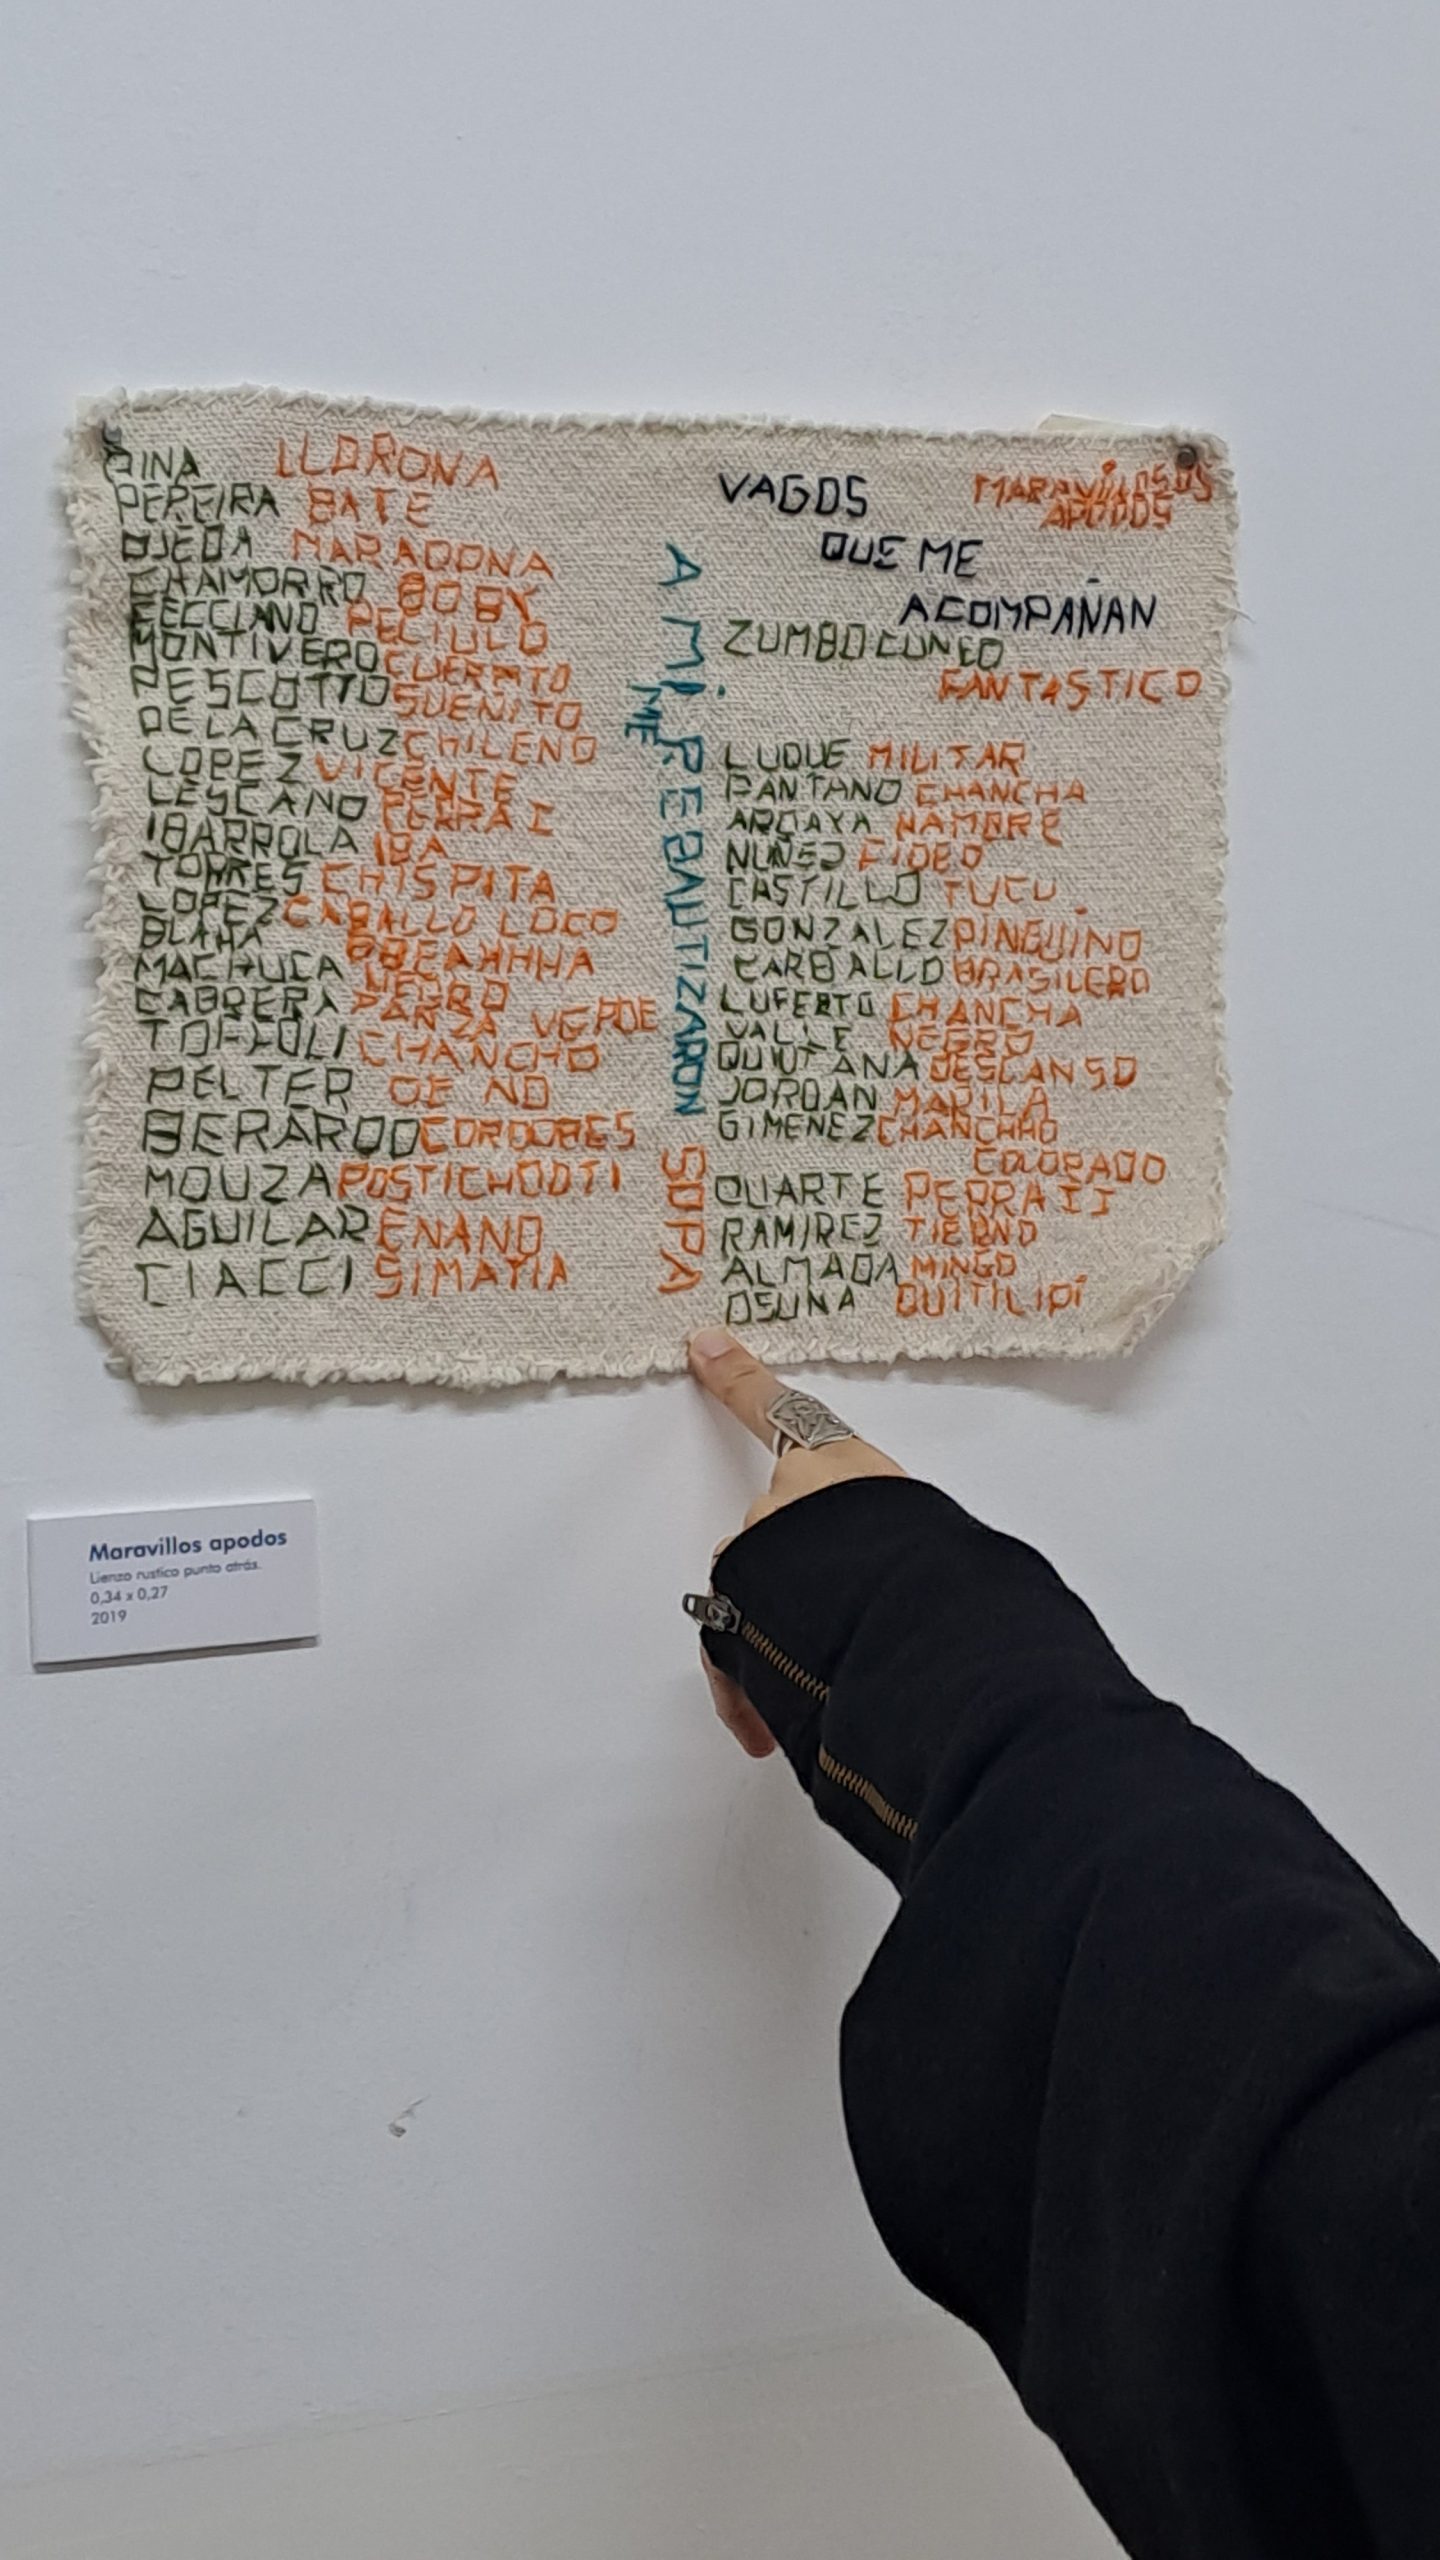 PINA LLORONA
PEREIRA BATE
OJEDA MARADONA
CHAMORRO BOBY
FECCIANO PECIULO
MONTIVERO CUERVITO
PESCOTTO SUEÑITO
DE LA CRUZ CHILENO
LOPEZ VICENTE
LESCANO PERRA I
IBARROLA IBA
TORRES CHISPITA
LOPEZ CABALLO LOCO
BLAHA BBEAHHHA
MACHUCA NEGRO
CABRERA PANZA VERDE
TOFFOLI CHANCHO
PELTER DE NO
BERARDO CORDOBES
MOUZA POSTICHODTI
AGUILAR ENANO
CIACCI
A MI ME REBAUTIZARON SOPA
MARAVILLOSOS
APODOS
VAGOS
QUE ME
ACOMPAÑAN
ZUMBO CUNEO
FANTASTICO
LUQUE MILITAR
PANTANO CHANCHA
ARGAYA HAMBRE
NUÑEZ FIDEO
CASTILLO TUCU
GONZALEZ PINGUINO
CARBALLO BRASILERO
LUFERTO CHANCHA
VALLE NEGRO
QUIUTANA DESCANSO
JORDAN MARILA
GIMENEZ CHANCHHO
COLORADO
DUARTE PERRA II
RAMIREZ TIERNO
ALMADA MINGO
OSUNA QUITILIPI
Maravillos apodos
Lienzo rustico punto atrás.
0,34 x 0,27
2019